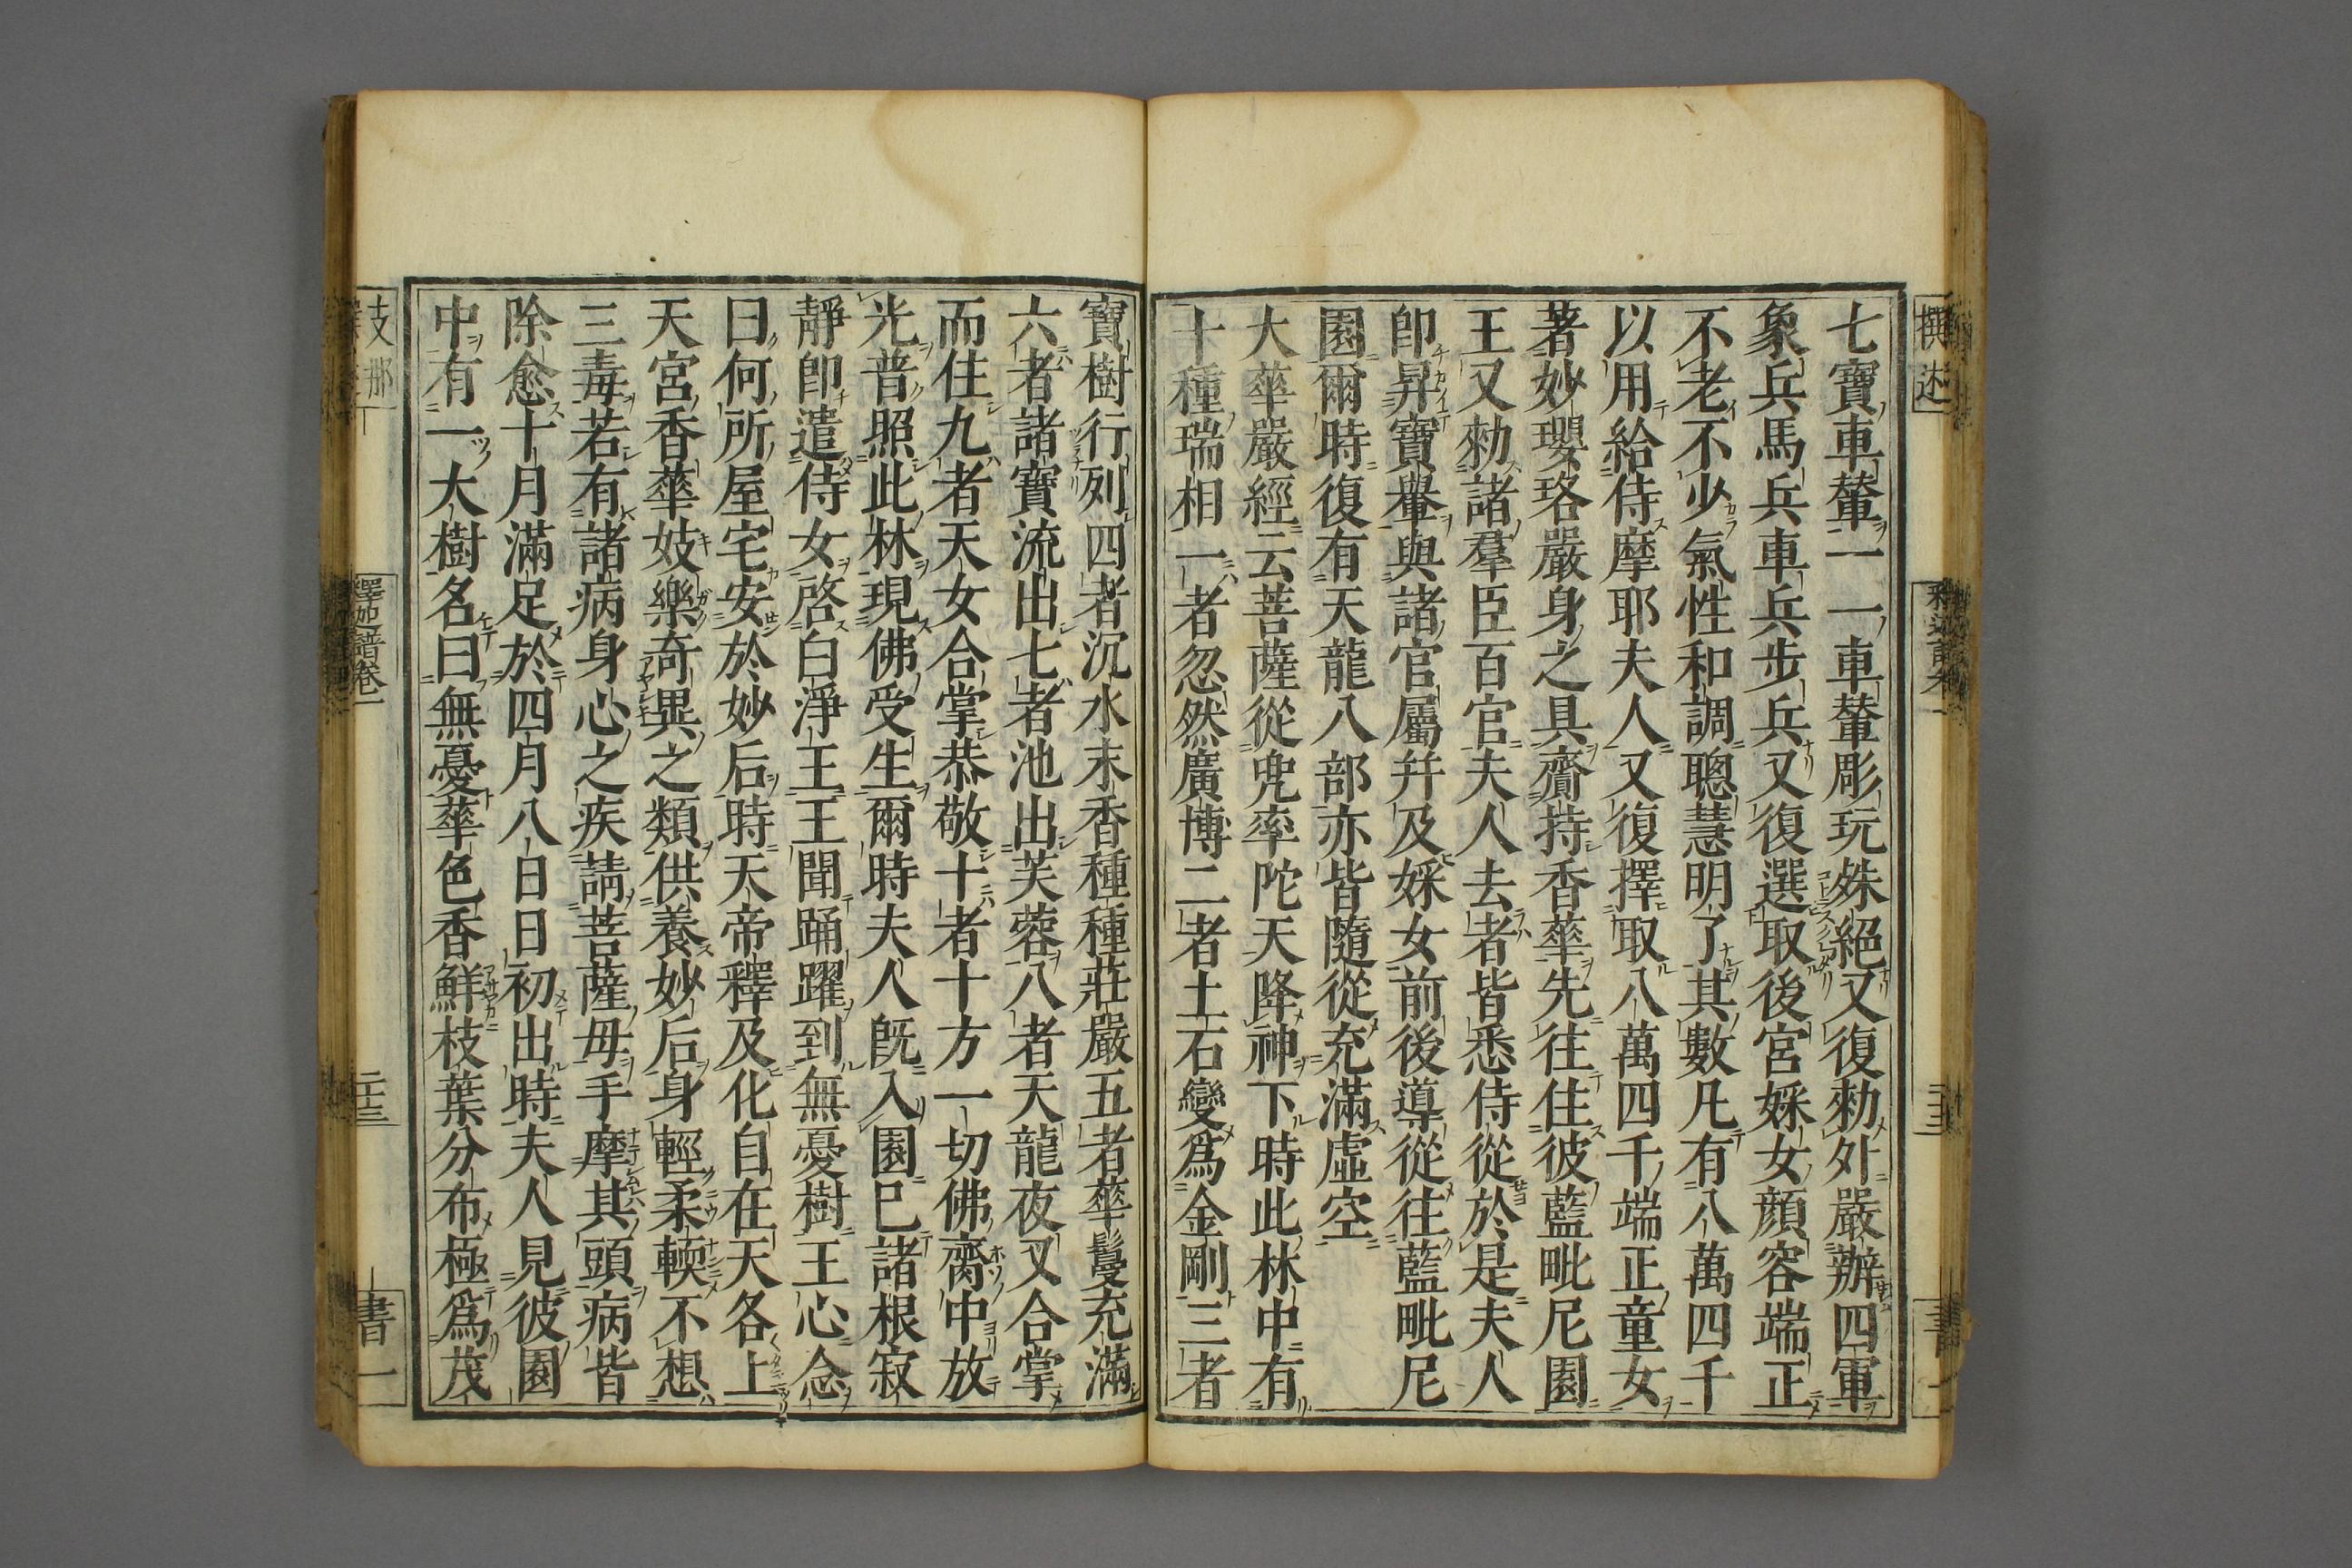 七寶車輦一一車輦彫玩殊絕又復勑外嚴辦四軍
象兵馬兵車兵步兵又復選取後宮婇女顏容端正
不老不少氣性和調聰慧明了其數凡有八萬四千
以用給侍摩耶夫人又復擇取八萬四千端正童女
著妙瓔珞嚴身之具齎持香華先往住彼藍毗尼園
王又勑諸羣臣百官夫人去者皆悉侍從於是夫人
卽昇寶轝與諸官屬幷及婇女前後導從往藍毗尼
園爾時復有天龍八部亦皆隨從充滿虛空
大華嚴經云菩薩從兜率陀天降神下時此林中有
十種瑞相一者忽然廣博二者土石變爲金剛三者
寶樹行列四者沉水末香種種莊嚴五者華鬘充滿
六者諸寶流出七者池出芙蓉八者天龍夜叉合掌
而住九者天女合掌恭敬十者十方一切佛齎中放
光普照此林現佛受生爾時夫人旣入園巳諸根寂
靜卽遣侍女啓白淨王王聞踊躍到無憂樹王心念
曰何所屋宅安於妙后時天帝釋及化自在天各上
天宮香華妓樂奇異之類供養妙后身輕柔輭不想
三毒若有諸病身心之疾請菩薩母手摩其頭病皆
除愈十月滿足於四月八日日初出時夫人見彼園
中有一大樹名曰無憂華色香鮮枝葉分布極爲茂
支那
撰述
釋迦譜卷一
二十三
書一